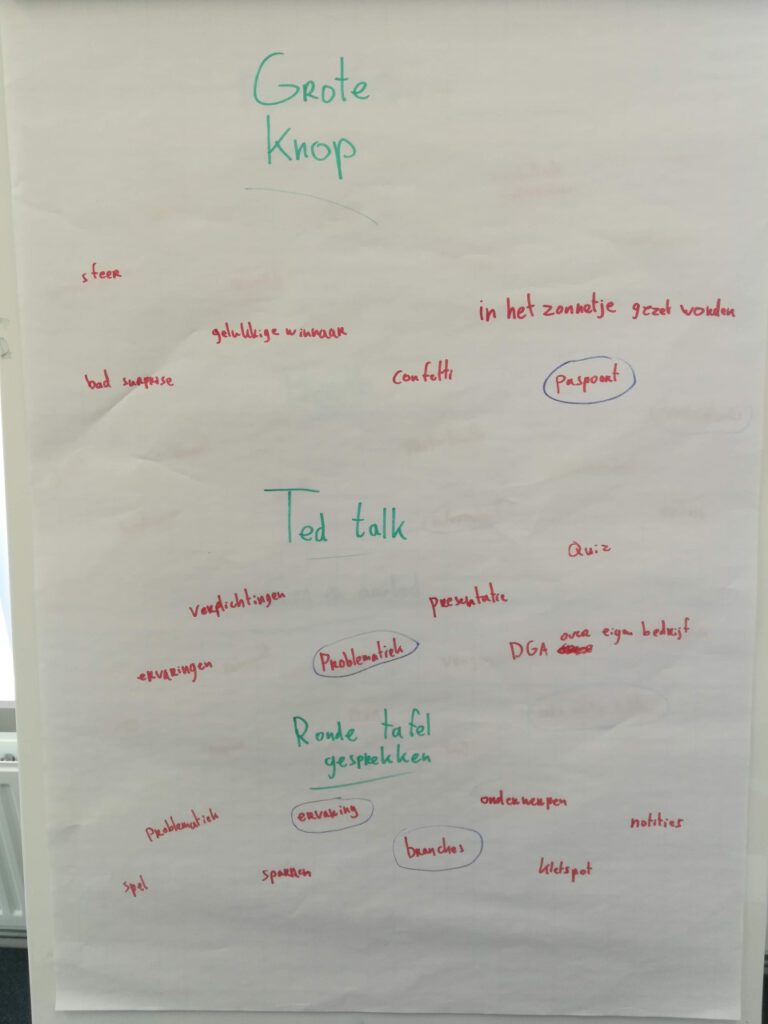 Grote
Knop
sfeer
in het zonnetje gezet worden
gelukkige winnaar
bad surprise
Confetti
Paspoort
Ted talk
Quiz
verplichtingen
presentatie
ervaringen
Problematiek
DGA over eigen bedrijf
Ronde tafel
gesprekken
Problematiek
ervaring
onderwerpen
notities
branches
spel
sparren
kletspot